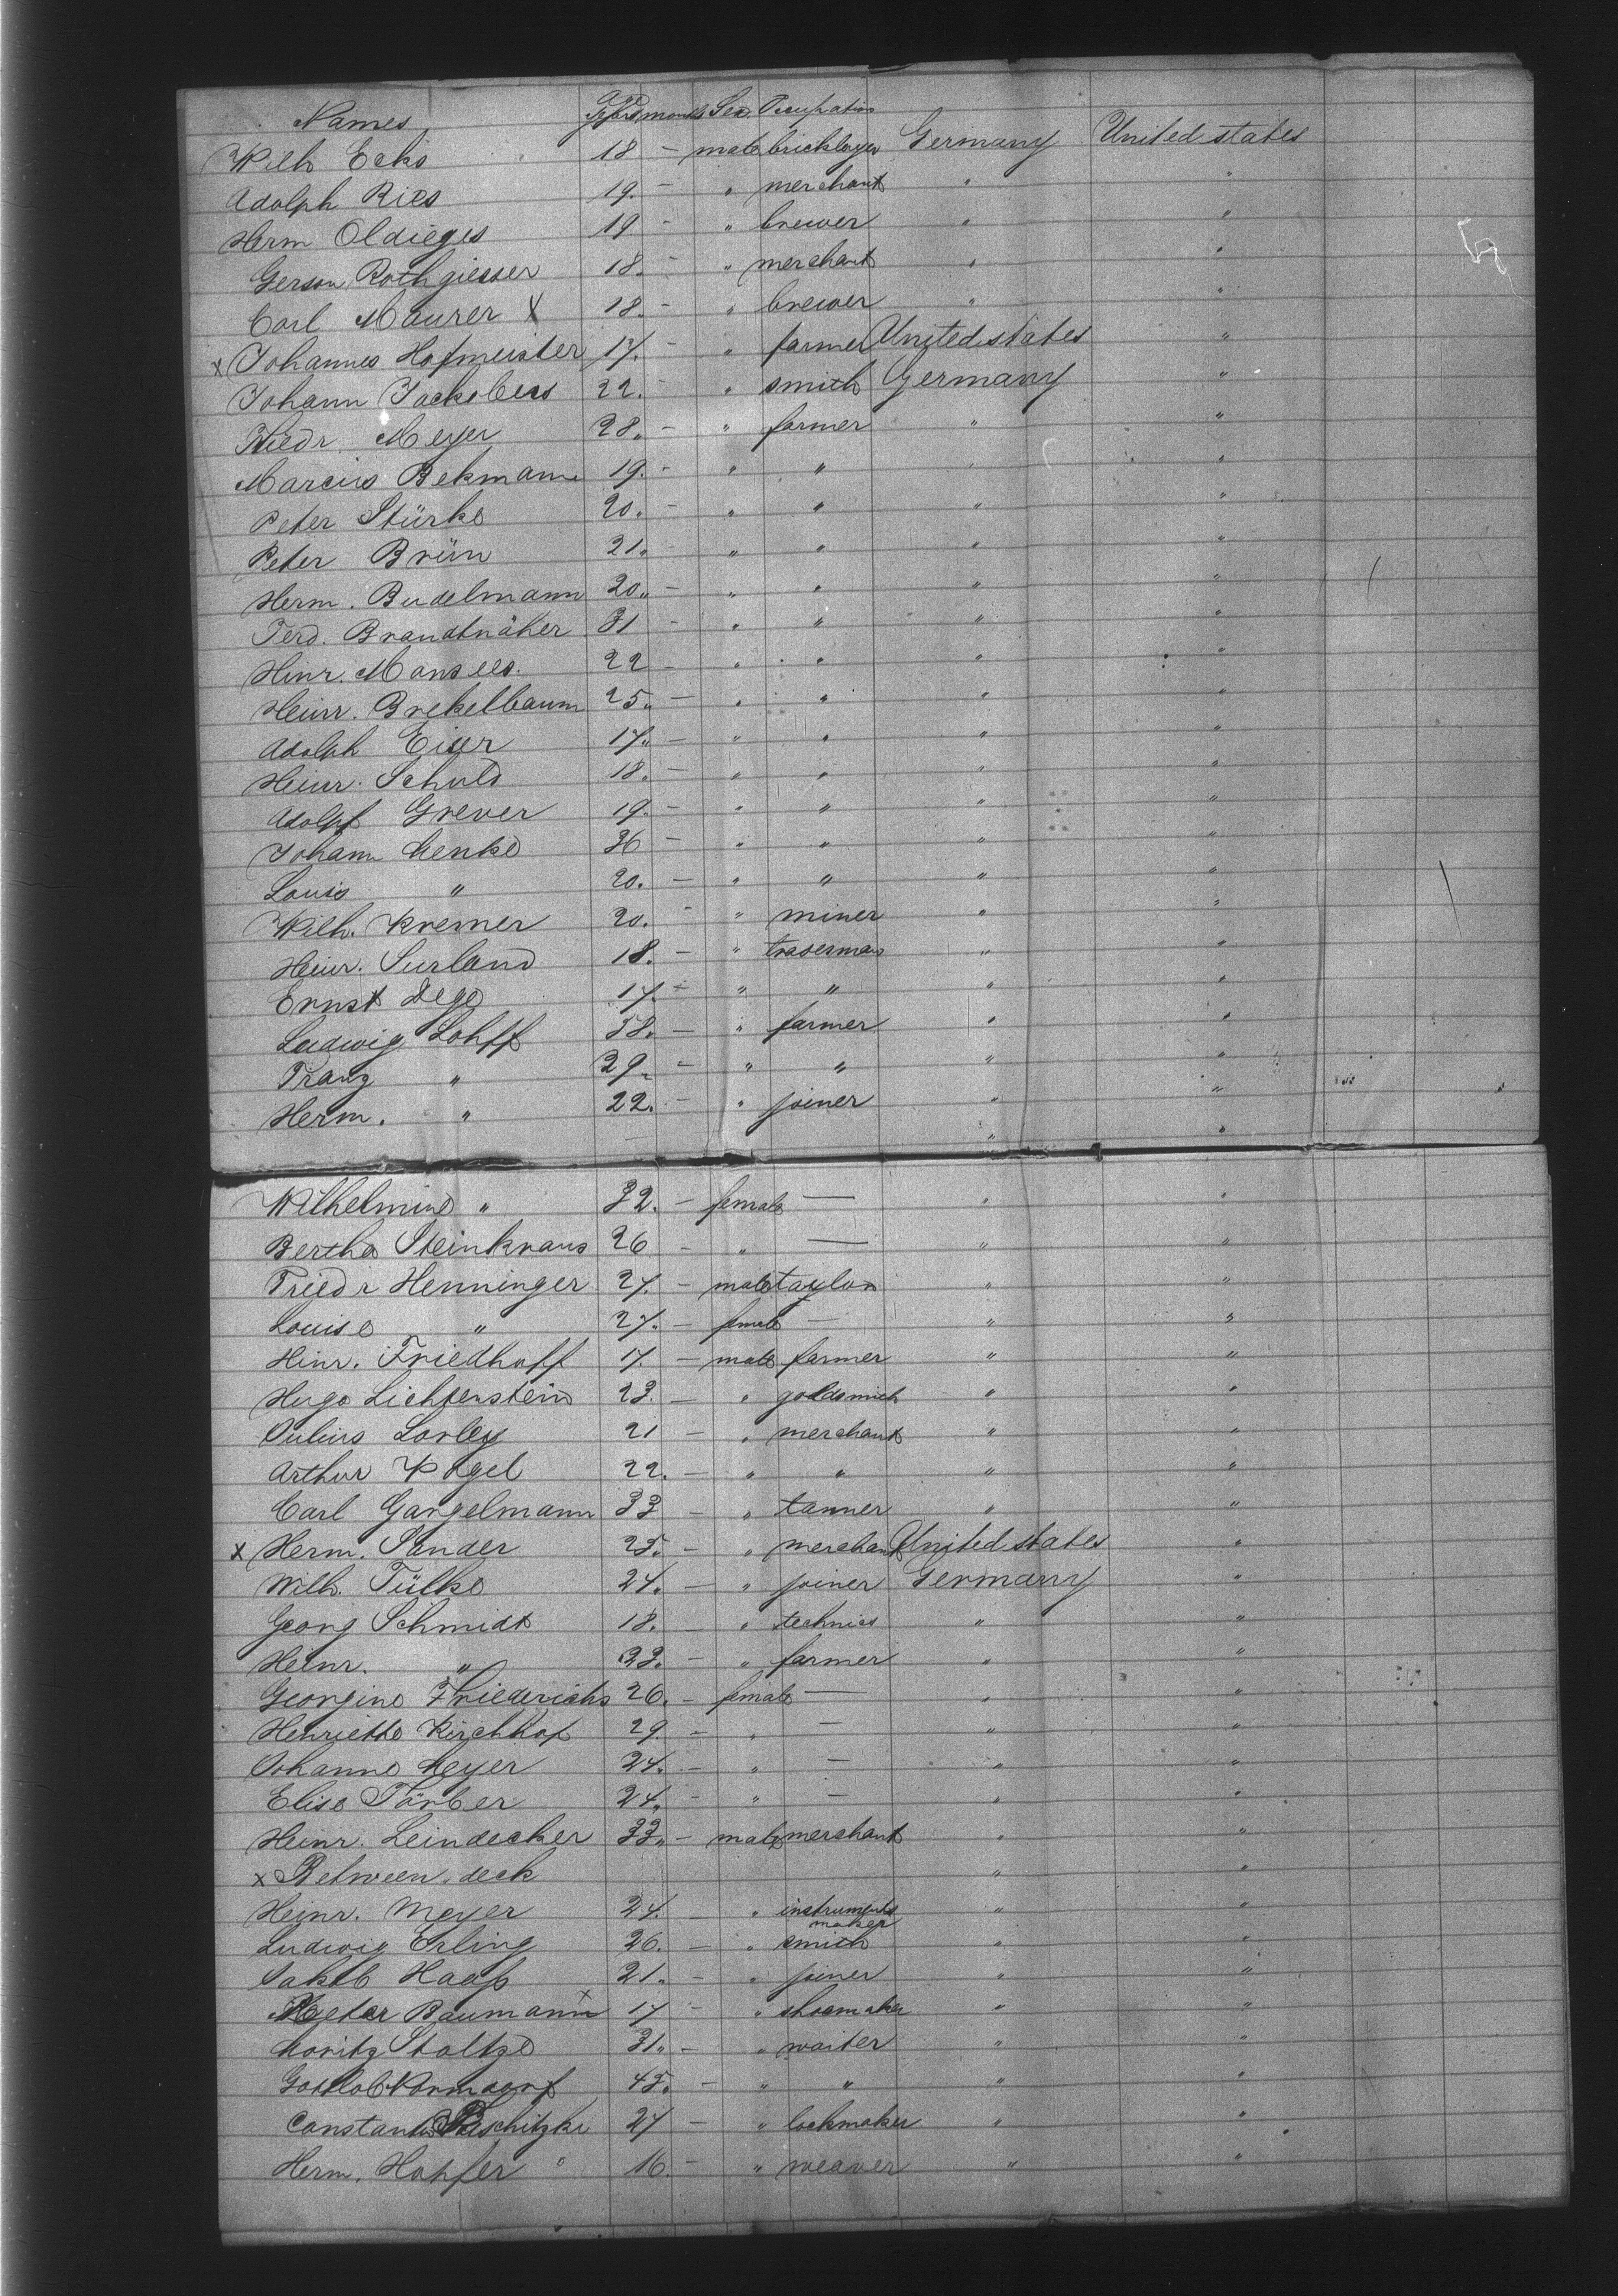 Names Age Years months Sex Occupation
Wilh Ecks 18 — male bricklayer Germany United states
Adolph Ries 19. — " merchant " "
Herm Oldieges 19 — " brewer " "
Gerson Rothgiesser 18. — " merchant " "
Carl Maurer X 18. — " brewer " "
x Johannes Hofmeister 17. — " farmer United states "
Johann 22. — " smith Germany "
Friedr. Meyer 28. — " farmer " "
Marcus Bekmann 19. — " " " "
Peter Stürke 20. — " " " "
Peter Brün 21. — " " " "
Herm. Budelmann 20. — " " " "
Ferd. Brandtnäher 31 — " " " "
Hinr. Mansees. 22 — " " " "
Heinr. Brekelbaum 25. — " " " "
Adolph 17. — " " " "
Heinr. Schuld 18. — " " " "
Adolf Grever 19. — " " " "
Johann Menke 36 — " " " "
Louis " 20. — " " " "
Wilh. Kremer 20. — " miner " "
Heinr. Surland 18. — " tradesman " "
Ernst Dege 17. — " " " "
Ludwig Lohff 58. — " farmer " "
Franz " 29. — " " " "
Herm. " 22. — " joiner " "
" "
Wilhelmine " 32. — female — " "
Bertha Steinkraus 26 — " — " "
Friedr Henninger 27. — male taylor " "
Louise " 27. — female — " "
Hinr. Friedhoff 17. — male farmer " "
Hugo Lichtenstein 23. — " goldsmith " "
Julius Lorley 21 — " merchant " "
Arthur Vogel 22. — " " " "
Carl Gangelmann 33 — " tanner " "
x Herm. Sander 25. — " merchant United states "
Wilh. Fülke 24. — " joiner Germany "
Georg Schmidt 18. — " technics " "
Heinr. " 33. — " farmer " "
Georgine Friederichs 26. — female — " "
Henriette Kirchhof 29. — " — " "
Johanne Meyer 24. — " — " "
Elise Färber 24. — " — " "
Heinr. Leindecker 33. — male merchant " "
x Between deck " "
Heinr. Meyer 24. — " instruments maker " "
Ludwig Erling 26. — " smith " "
Jakob Haaß 21. — " joiner " "
Peter Baumann x 17 — " shoemaker " "
Moritz Stoltze 31. — " waiter " "
Gottlob 45. — " " " "
24 — " lockmaker " "
Herm. Hopfer 16. — " weaver " "